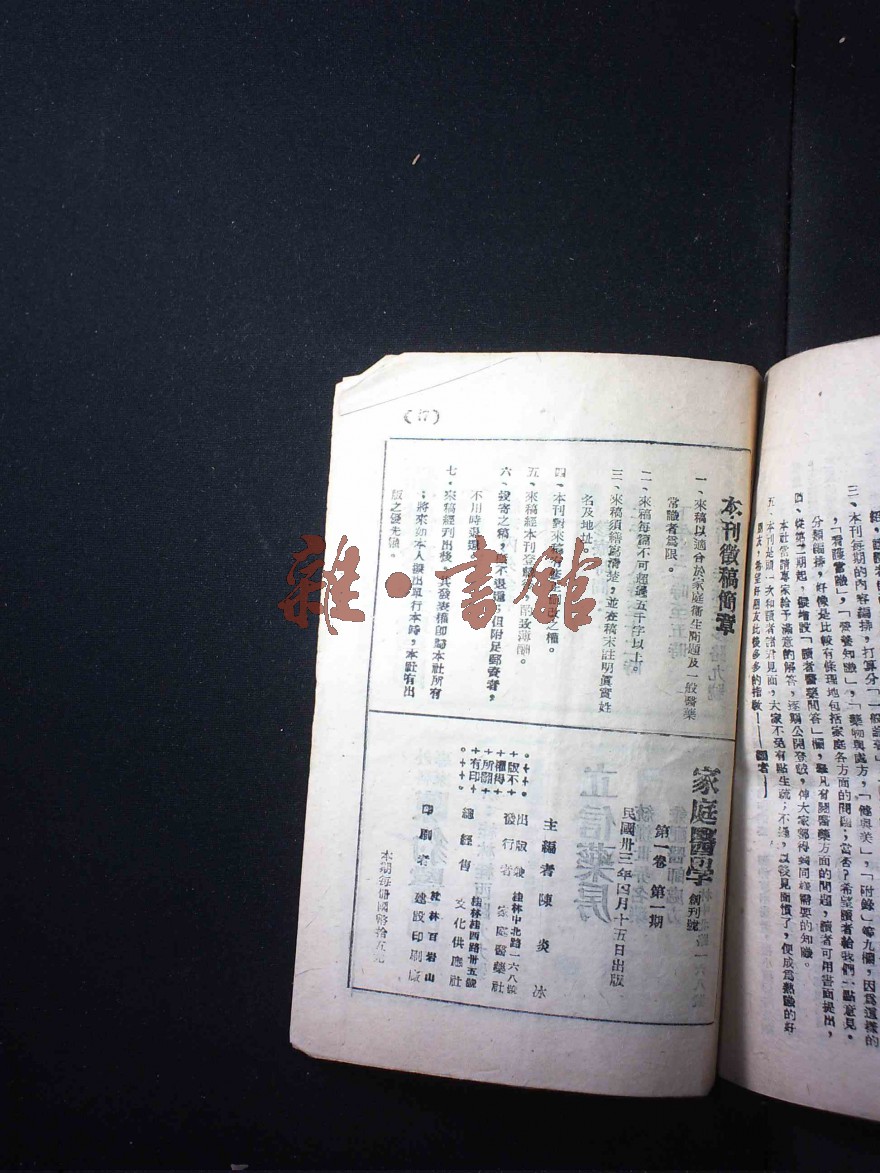 輕，讀後看的
三、本刊每期的內容編排，打算分「一般論著」
，「看護常識」，「營養知識」，「藥物與處方」，「健與美」，「附錄」等九欄，因爲這樣的
分類編排，好像是比較有條理地包括家庭各方面的問題；當否？希望讀者給我們一點意見。
四、從第二期起，擬增設「讀者醫藥問答」欄，舉凡有關醫藥方面的問題，讀者可用書面提出，
本社當請專家給予滿意的解答，逐期公開登載，俾大家都得到同樣需要的知識。
五、本刊是頭一次和讀者諸君見面，大家不免有點生疏；不過，以後見面慣了，便成爲熱識的好
朋友，希望好朋友此後多多的指敎——編者——
(47)
本刊徵稿簡章
一、來稿以適合於家庭衛生問題及一般醫藥
常識者爲限。
二、來稿每篇不可超過五千字以上。
三、來稿須繕寫清楚，並在稿末註明眞實姓
名及地址。
四、本刊對來稿有
改之權。
五、來稿經本刊登
酌致薄酬。
六、投寄之稿，
不退還；但附足郵資者，
不用時退還。
七、來稿經刊出後，其發表權卽歸本社所有
；將來如本人擬出單行本時，本社有出
版之優先權。
家庭醫學 創刊號
第一卷 第一期
民國卅三年四月十五日出版
主編者 陳炎冰
出版兼 桂林中北路一六八號
發行者 家庭醫藥社
總經售 桂林桂西路卅五號
文化供應社
印刷者 桂林百岩山
建設印刷廠
版不
權得
所翻
有印
本期每冊國幣拾五元
雜·書館